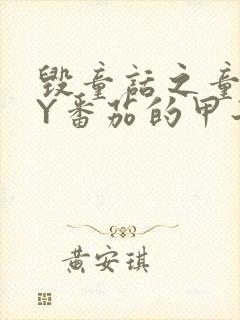 毁童话之童
Y番茄的甲
黄安琪